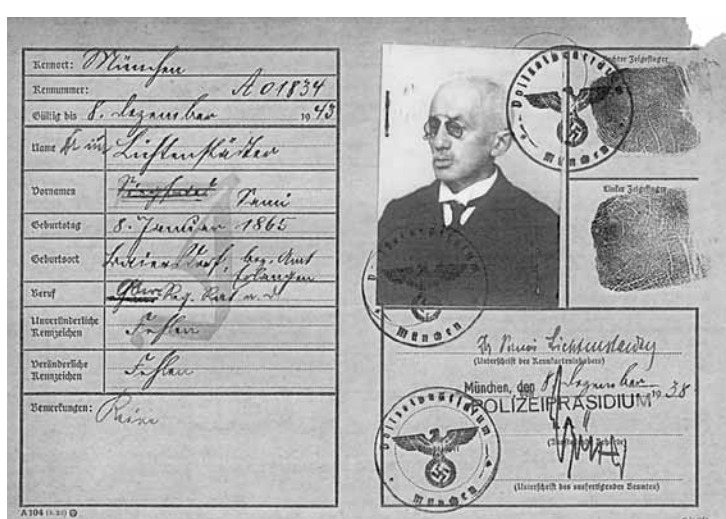 Kennort: München
Kennummer: A 01834
Gültig bis 8. Dezember 1943
Name Dr. Lichtenstädter
Vornamen Siegfried Semi
Geburtstag 8. Januar 1865
Geburtsort Baiersdorf, bez. Amt
Erlangen
Beruf Ober Reg. Rat a. D.
Unveränderliche
Kennzeichen Fehlen
Veränderliche
Kennzeichen Fehlen
Bemerkungen: Keine
A 104
Rechter Zeigefinger
Linker Zeigefinger
Polizeipräsidium
München
Polizeipräsidium
München
Dr Lichtenstaedter
(Unterschrift des Kennkarteninhabers)
München, den 8. Dezember 1938
POLIZEIPRÄSIDIUM
(Unterschrift des ausfertigenden Beamten)
Polizeipräsidium
München